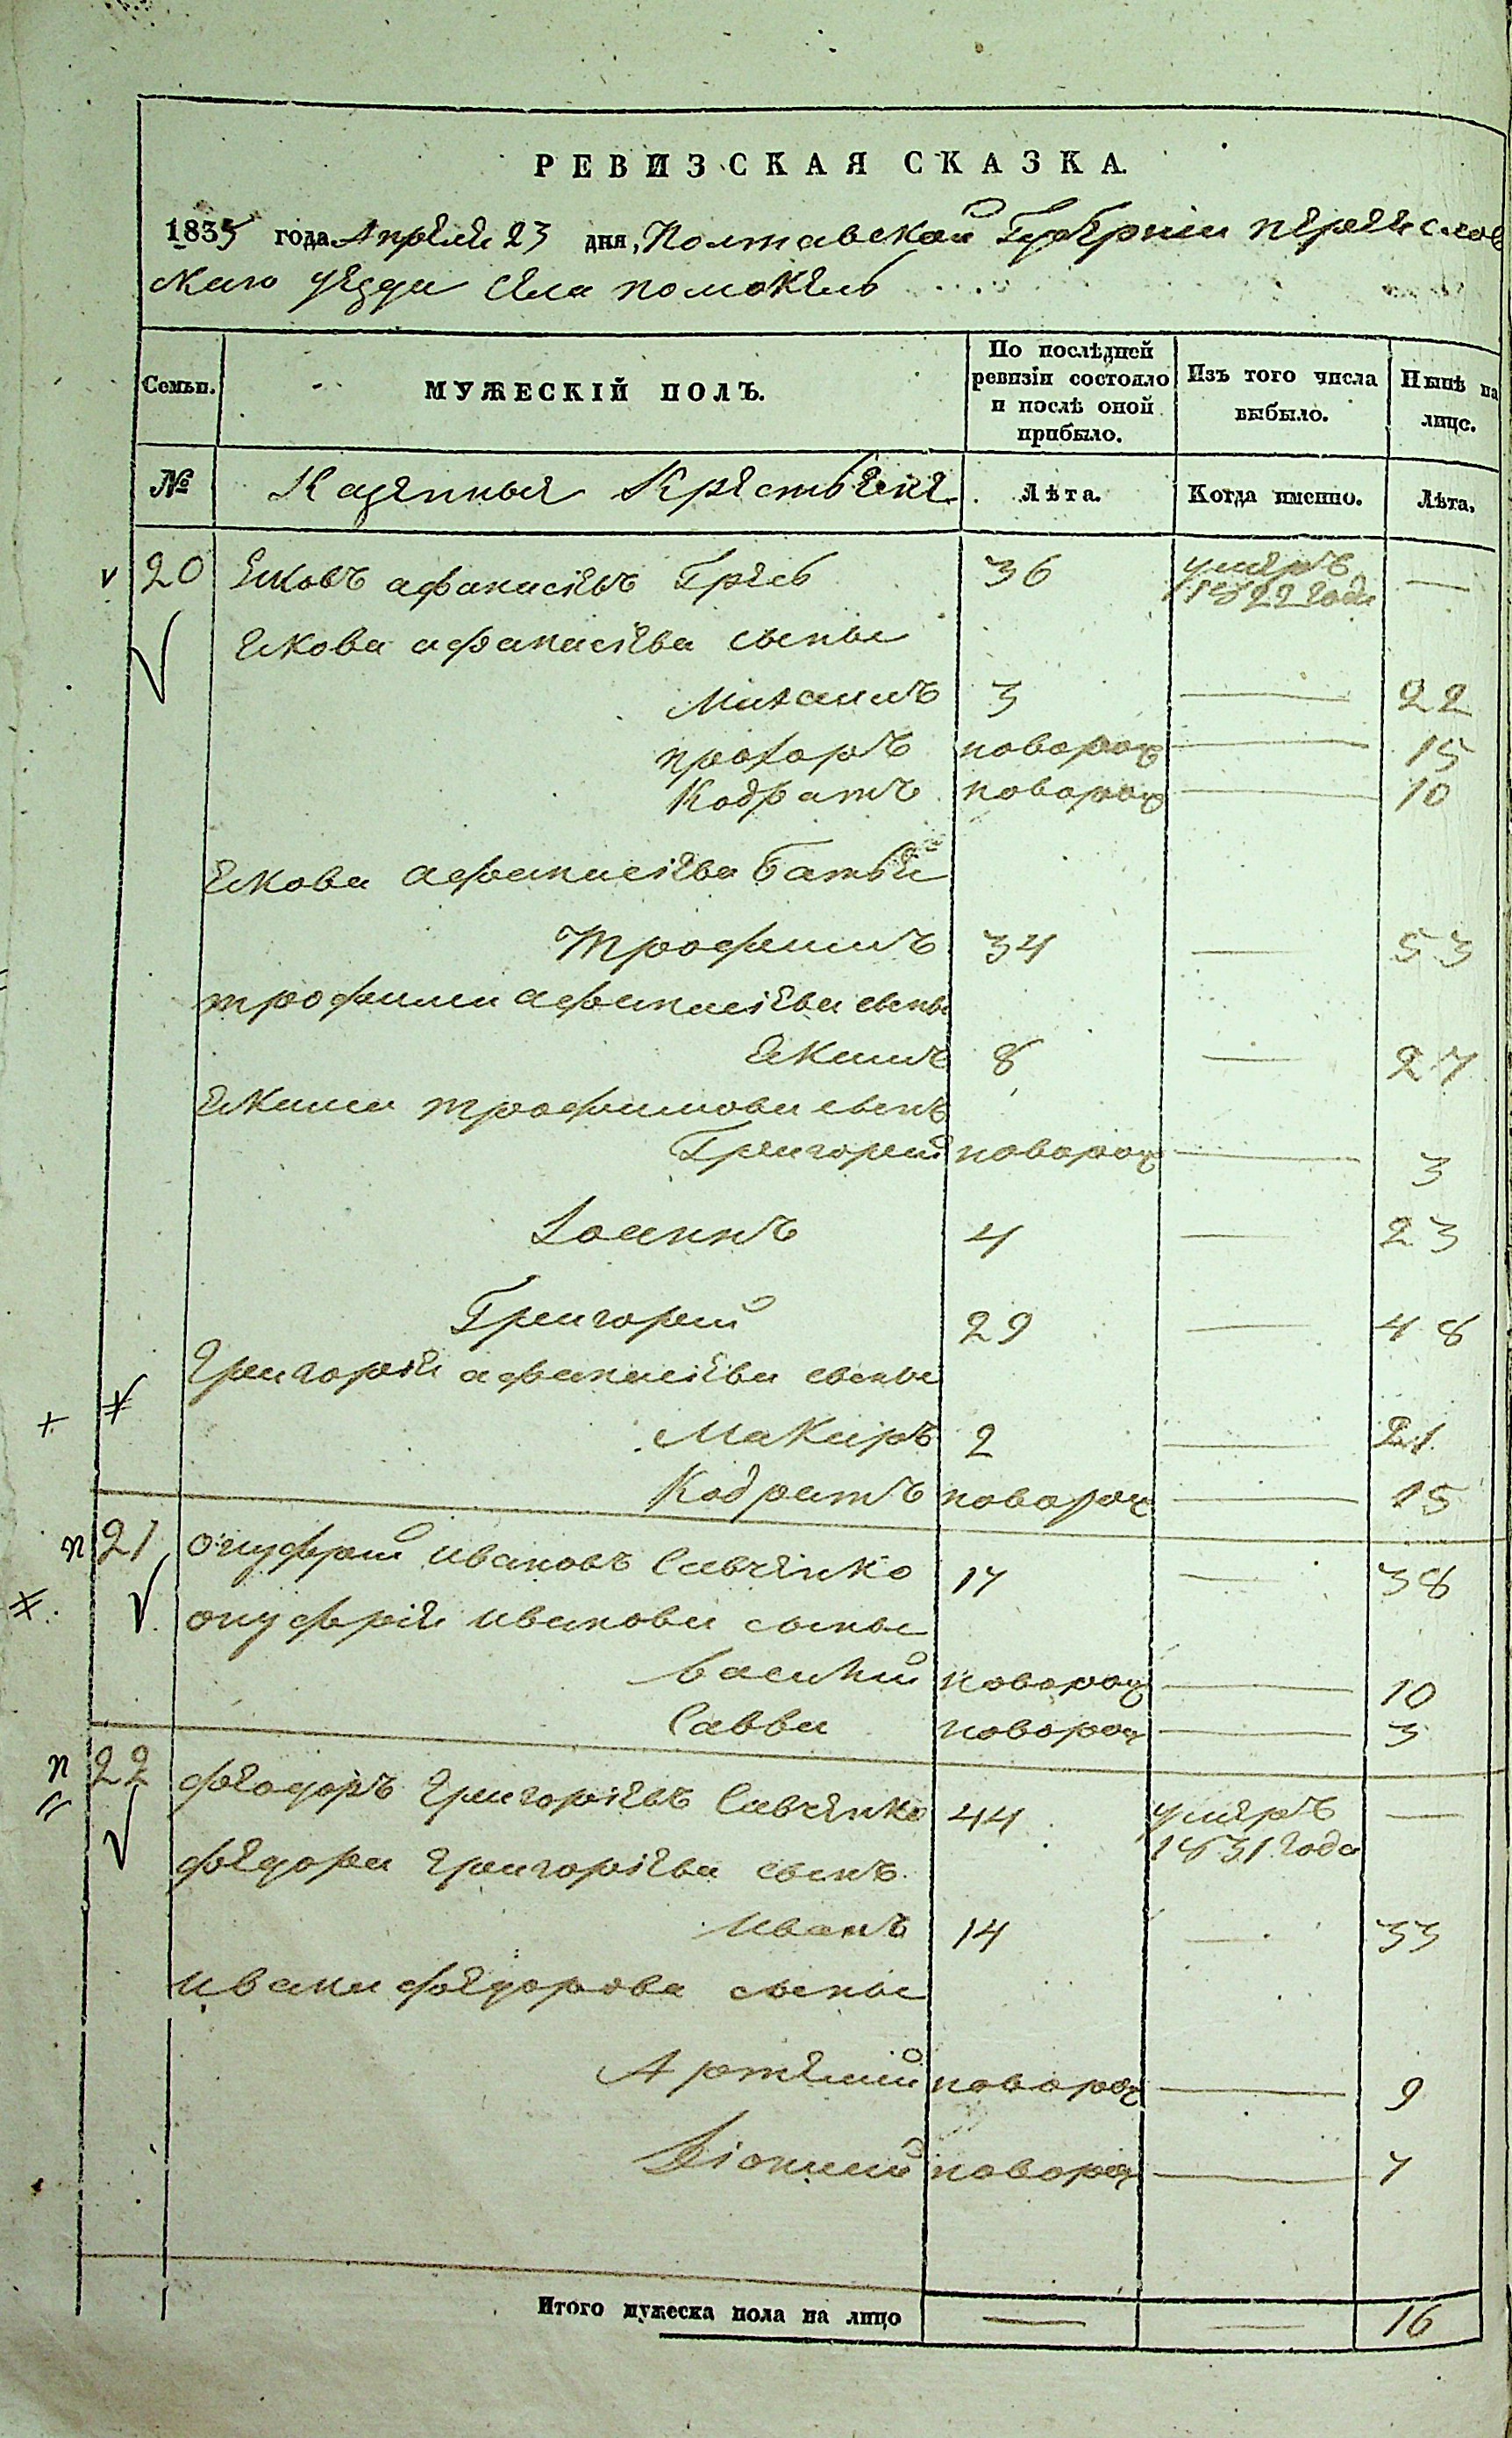 РЕВИЗСКАЯ СКАЗКА.
1835 года Апреля 23 дня, Полтавской Губернии переяслов
скаго уезда села помокель
Семьи. МУЖЕСКІЙ ПОЛЪ. По послѣдней ревизіи состояло и послѣ оной прибыло. Изъ того числа выбыло. Нынѣ на лице.
№ Казенныя Крестьяне Лѣта. Когда именно. Лѣта.
20 Яковъ афанасіевъ Грясь 36 умеръ 1822 года —
Якова афанасіева сыны
Михаилъ 3 — 22
прохоръ новорож — 15
Кодратъ новорож — 10
Якова афанасіева батья
Трофимъ 34 — 53
трофима афанасіева сыны
Якимъ 8 — 27
Якима трофимова сынъ
Григорий новорож — 3
Іоаннъ 4 — 23
Григорий 29 — 48
Григорія афанасіева сыны
Макаръ 2 — 21
Кодратъ новорож — 15
п 21 онуфрий ивановъ Савченко 17 — 38
онуфрія иванова сыны
василий новорож — 10
Савва новорож — 3
п 22 феодоръ григоріевъ Савченко 44 умеръ 1831 года —
федора григоріева сынъ
иванъ 14 — 33
ивана федорова сыны
Артемий новорож — 9
новорож — 7
Итого мужеска пола на лицо — — 16